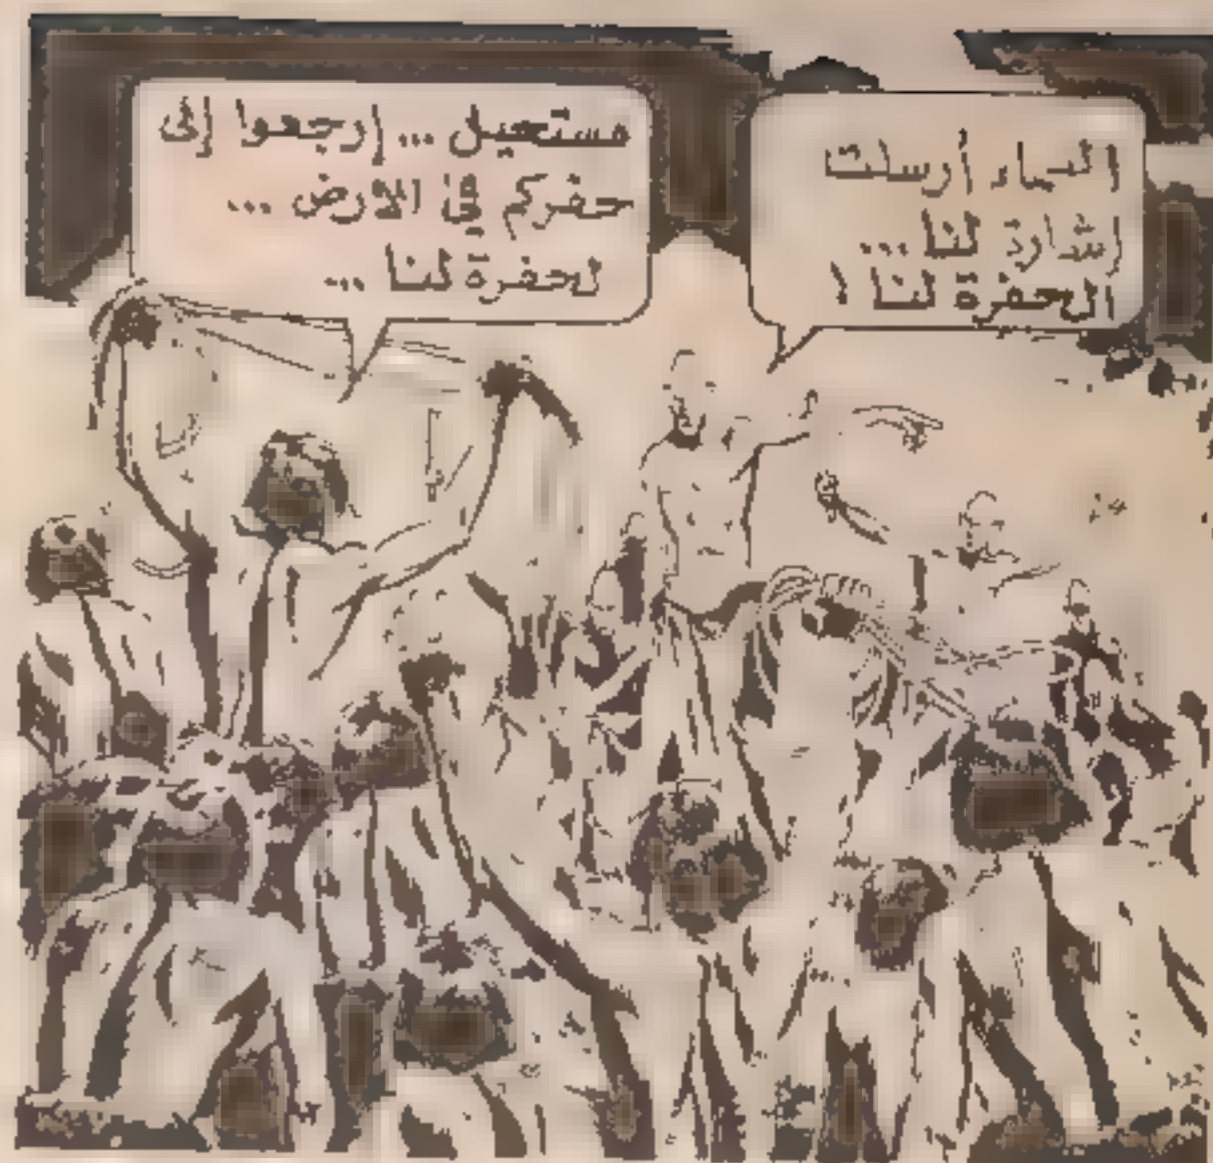 السماء أرسلت
إشارة لنا ...
الحفرة لنا !
مستحيل ... إرجعوا إلى
حفركم في الأرض ...
لحفرة لنا ...